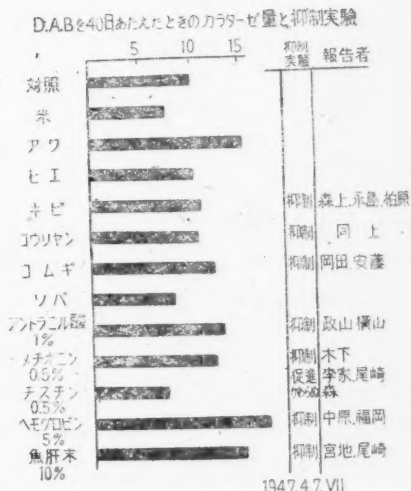 D.A.Bを40日あたえたときのカラターゼ量と抑制実験
5 10 15
抑制実験 報告者
対照
米
アワ
ヒエ
キビ 抑制 森上、永島、柏原
コウリヤン 抑制 同上
コムギ 抑制 岡田、安藤
ソバ
アントラニル酸 1% 抑制 政山、横山
メチオニン 0.5% 抑制 木下
促進 李家、尾崎
チスチン 0.5% かわらぬ 森
ヘモグロビン 5% 抑制 中原、福岡
魚肝末 10% 抑制 宮地、尾崎
1947.4.7 VII